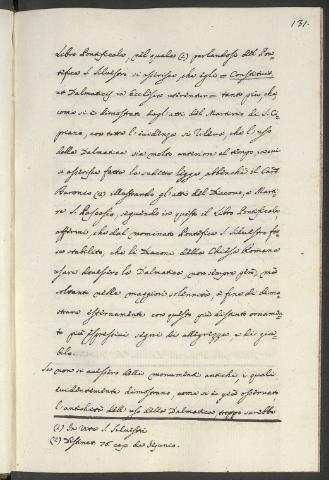 131.
Libro Pontificale, nel quale (1) parlandosi del Pon-
tefice S. Silvestro si asserisce, che egli = Constituit,
ut Dalmaticis in Ecclesia uterentur = tanto più, che,
come si è dimostrato dagli atti del Martirio di S. Ci-
priano, con tutta l'evidenza si rileva, che l'uso
della Dalmatica sia molto anteriore al tempo, in cui
si asserisce fatta la suddetta legge, abbenchè il Card.
Baronio (2) illustrando gli atti del Diacono, e Marti-
re S. seguendo in questo il Libro Pontificale
affermi, che dal nominato Pontefice S. Silvestro fos-
se stabilito, che li Diaconi della Chiesa Romana
usare dovessero la Dalmatica, non sempre però, mà
soltanto nelle maggiori solennità, a fine di dimo-
strare esternamente con questo più distinto ornamen-
to più espressivi segni di allegrezza, e di giu-
bilo.
Se non si avessero delli monumenti antichi, i quali
evidentemente dimostrano, come si è già osservato
l'antichità dell'uso della Dalmatica, troppo sarebbe
(1) In Vita S. Silvestri
(2) 76. cap. de Jejunio.